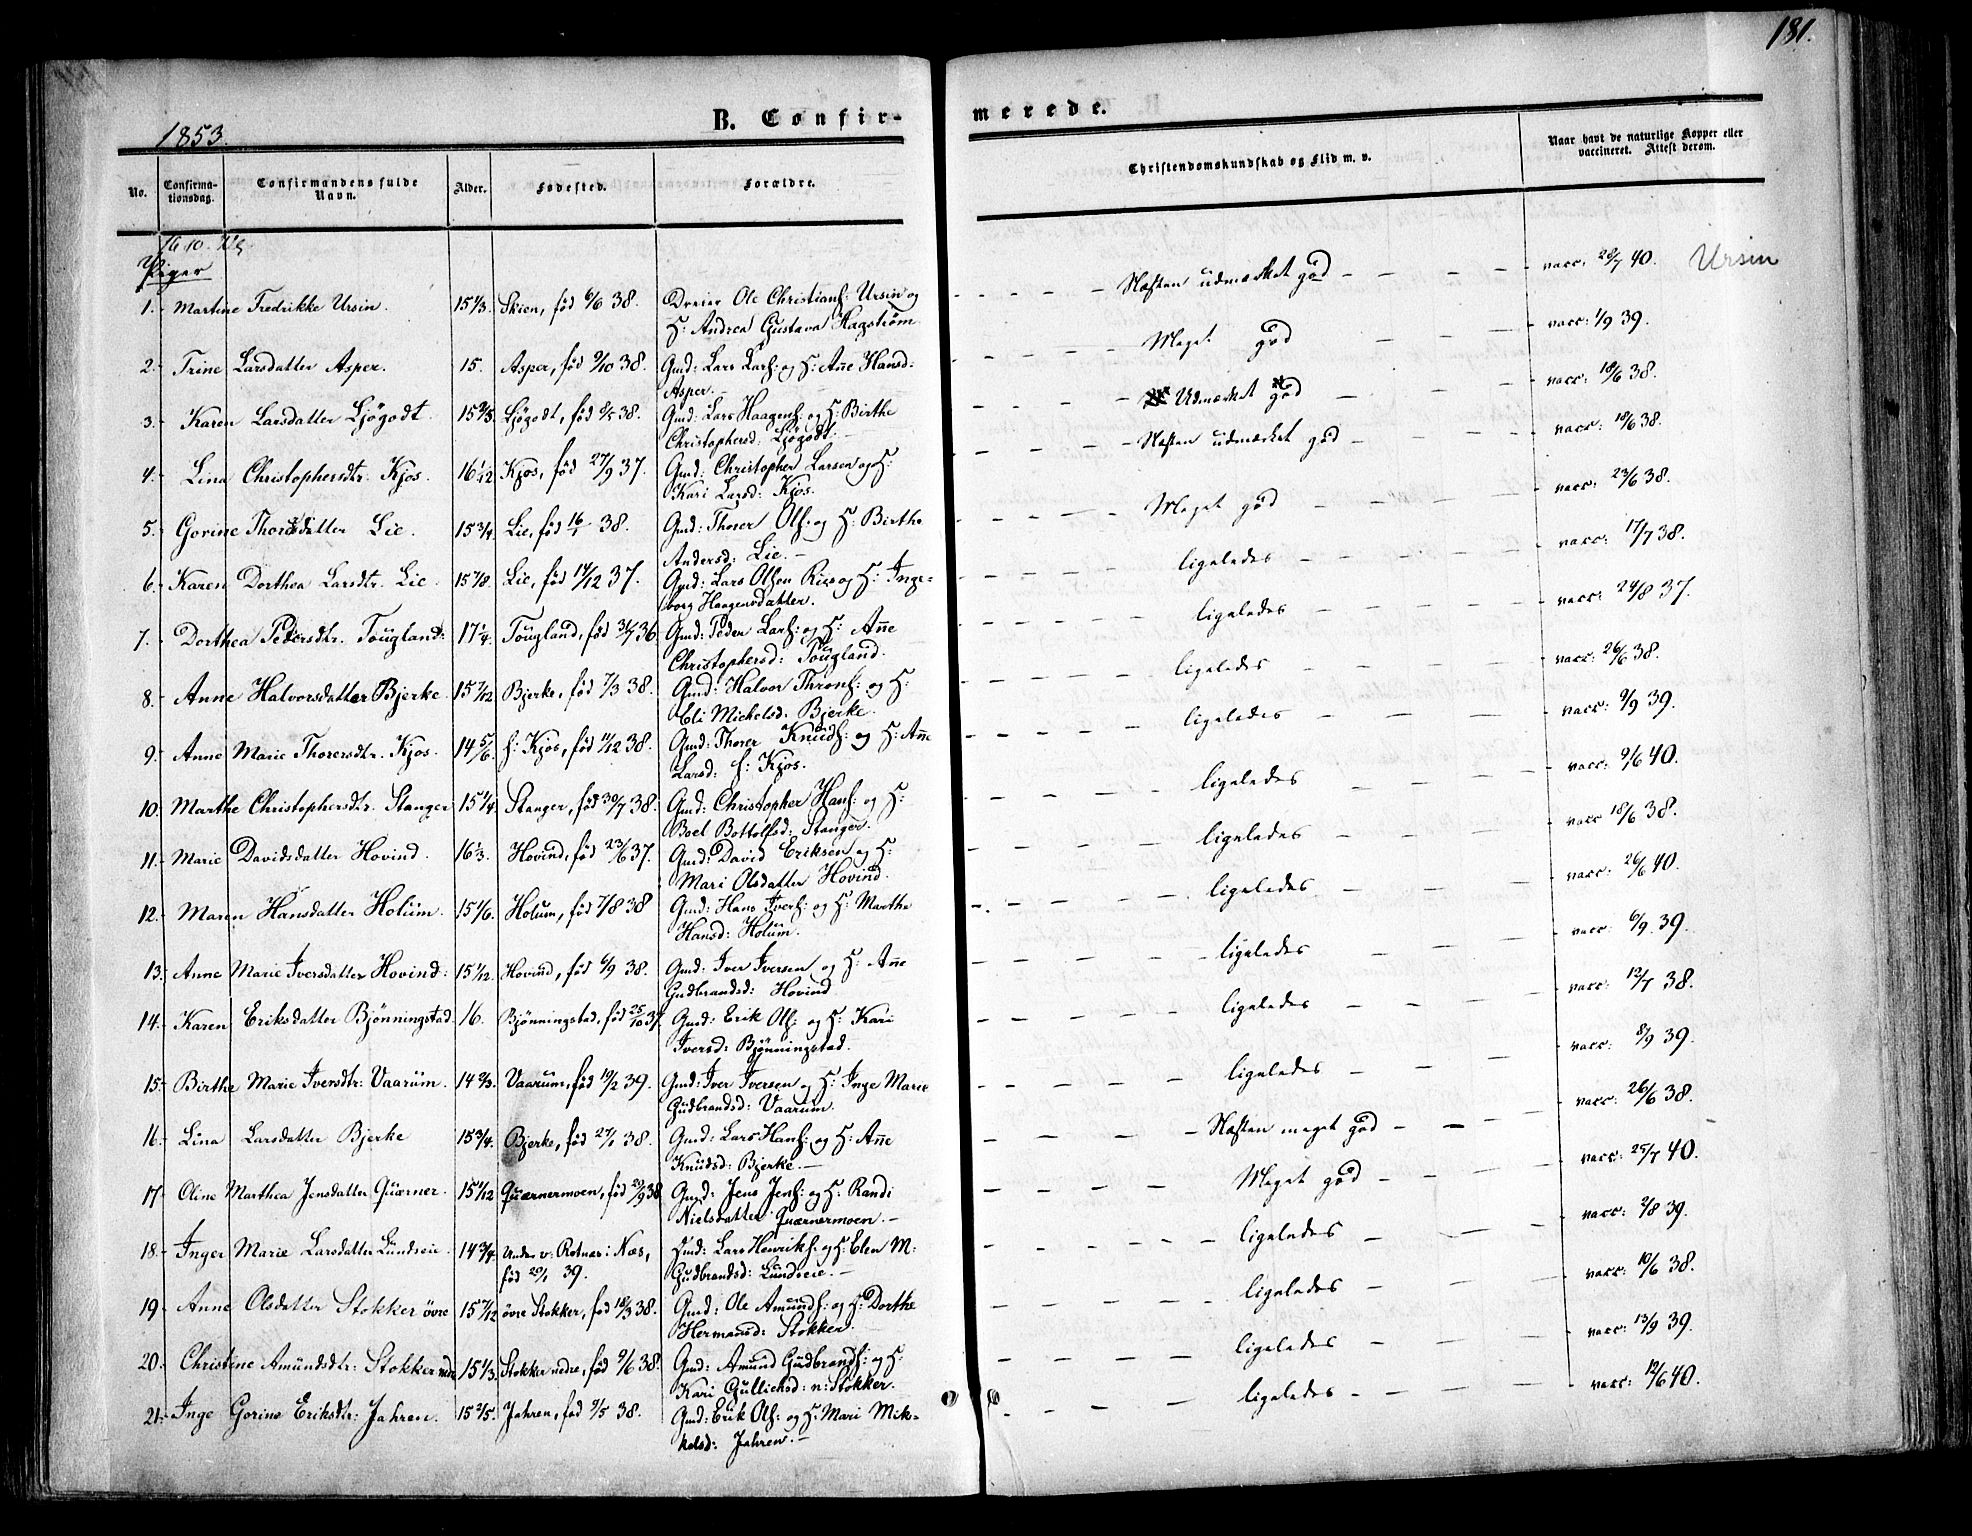 181.
B. Confir-
merede.
1853.
No.
Confirma-
tionsdag.
Confirmandens fulde
Navn.
Alder.
Fødested.
Forældre.
Christendomskundskab og Flid m. v.
Naar havt de naturlige Kopper eller
vaccineret. Attest derom.
Piger
1. Martine Fredrikke Ursin. 15 1/3. Skien, fød 6/6 38. Dreier Ole Christians: Ursin og
H: Andrea Gustava Hagstrøm
Næsten udmærket god vacc: 28/7 40. Ursin
2. Trine Larsdatter Asper. 15. Asper, fød 9/10 38. Gmd: Lars Lars: og H: Anne Hansd:
Asper.
Meget god vacc: 1/9 39.
3. Karen Larsdatter Ljøgodt. Ljøgodt, fød 38. Gmd: Lars Haagens: og H: Birthe
Christophersd: Ljøgodt.
Udmærket god vacc: 18/6 38.
4. Lina Christophersdtr. Kjos. 16 1/12 Kjos, fød 27/9 37. Gmd: Christopher Larsen og H:
Kari Larsd: Kjos.
Næsten udmærket god vacc: 18/6 38.
5. Gorine Thorsdatter Lie. 15 3/4 Lie, fød 16/1 38. Gmd: Thorer Ols: og H: Birthe
Andersd: Lie.
Meget god vacc: 23/6 38.
6. Karen Dorthea Larsdtr. Lie. 15 7/8. Lie, fød 14/12 37. Gmd: Lars Olsen Riis og H: Inge-
borg Haagensdatter.
ligeledes vacc: 17/7 38.
7. Dorthea Pedersdtr. Tougland: 17 1/4. Tougland, fød 31/7 36 Gmd: Peder Lars: og H: Anne
Christophersd: Tougland.
ligeledes vacc: 24/8 37.
8. Anne Halvorsdatter Bjerke. 15 7/12 Bjerke, fød 7/3 38. Gmd: Halvor Throns: og H:
Eli Michelsd: Bjerke.
ligeledes vacc: 26/6 38.
9. Anne Marie Thorersdtr. Kjos. 14 5/6. f: Kjos, fød 11/12 38. Gmd: Thorer Knuds: og H: Anne
Larsd: f: Kjos.
ligeledes vacc: 9/9 39.
10. Marthe Christophersdtr. Stanger 15 1/4. Stanger, fød 30/7 38. Gmd: Christopher Hans: og H:
Boel Bottolfsd: Stanger.
ligeledes vacc: 9/6 40.
11. Marie Davidsdatter Hovind. 16 1/3. Hovind, fød 23/6 37. Gmd: David Eriksen og H:
Mari Olsdatter Hovind.
ligeledes vacc 18/6 38.
12. Maren Hansdatter Holum. 15 1/6. Holum, fød 7/8 38 Gmd: Hans Ivers: og H: Marthe
Hansd: Holum.
ligeledes. vacc: 26/6 40.
13. Anne Marie Iversdatter Hovind: 15 1/12. Hovind, fød 6/9 38. Gmd: Iver Iversen og H: Anne
Gudbrandsd: Hovind
ligeledes vacc: 6/9 39.
14. Karen Eriksdatter Bjønningstad. 16. Bjønningstad, fød 25/10 37. Gmd: Erik Ols: og H: Kari
Iversd: Bjønningstad.
ligeledes vacc: 12/7 38.
15. Birthe Marie Iversdtr: Vaarum. 14 2/3. Vaarum, fød 19/2 39. Gmd: Iver Iversen og H: Inge Marie
Gudbrandsd: Vaarum.
ligeledes vacc: 8/9 39.
16. Lina Larsdatter Bjerke 15 3/4. Bjerke, fød 27/1 38. Gmd: Lars Hans: og H: Anne
Knudsd: Bjerke.
Næsten meget god vacc: 26/6 38.
17. Oline Marthea Jensdatter Quærner. 15 1/12 Quærnermoen, fød 29/9 38 Gmd: Jens Jens: og H: Randi
Nielsdatter Quærnermoen.
Meget god vacc: 25/7 40.
18. Inger Marie Larsdatter Lundseie. 14 3/4. Næs,
fød 20/1 39. Lars Henriks: og H: Elen M:
Gudbrandsd: Lundseie.
ligeledes vacc: 2/8 39.
19. Anne Olsdatter Stokker øvre 15 7/12 øvre Stokker, fød 18/3 38. Gmd: Ole Amunds: og H: Dorthe
Hermansd: Stokker.
ligeledes vacc: 10/6 38.
20. Christine Amundsdtr: Stokker nedr. 15 1/3. Stokker nedre, fød 9/6 38. Gmd: Amund Gudbrands: og H:
Kari Gullichsd: n: Stokker.
ligeledes vacc: 13/9 39.
21. Inge Gorine Eriksdtr: Jahren. 15 2/5. Jahren, fød 9/5 38. Gmd: Erik Ols: og H: Mari Mik-
kelsd: Jahren.
ligeledes vacc: 12/6 40.